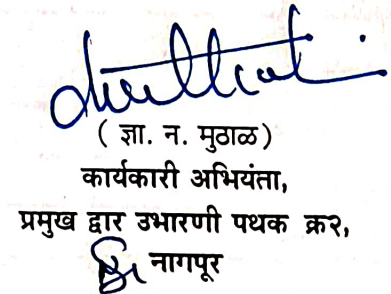 ( ज्ञा. न. मुठाळ)
कार्यकारी अभियंता,
प्रमुख द्वार उभारणी पथक क्र२,
नागपूर